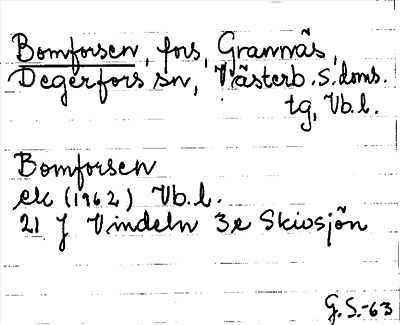 Bomforsen, fors, Grannäs,
Degerfors sn, Västerb. s. doms.
tg, Vb. l.
Bomforsen
ek (1962) Vb. l.
21 J Vindeln 3e Skivsjön
G. S. -63